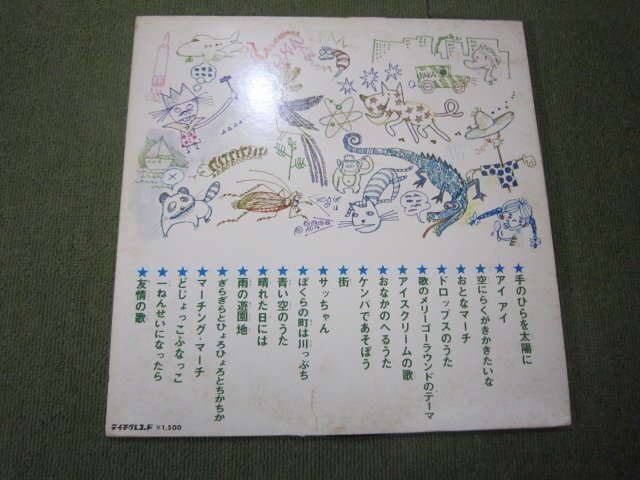 BAKA
★手のひらを太陽に
★アイ アイ
★空にらくがきかきたいな
★おとなマーチ
★ドロップスのうた
★歌のメリーゴーラウンドのテーマ
★アイスクリームの歌
★おなかのへるうた
★ケンパであそぼう
★街
★サッちゃん
★ぼくらの町は川っぷち
★青い空のうた
★晴れた日には
★雨の遊園地
★ぎらぎらとひょろひょろとちかちか
★マーチング・マーチ
★どじょっこふなっこ
★一ねんせいになったら
★友情の歌
テイチクレコード ¥1,500